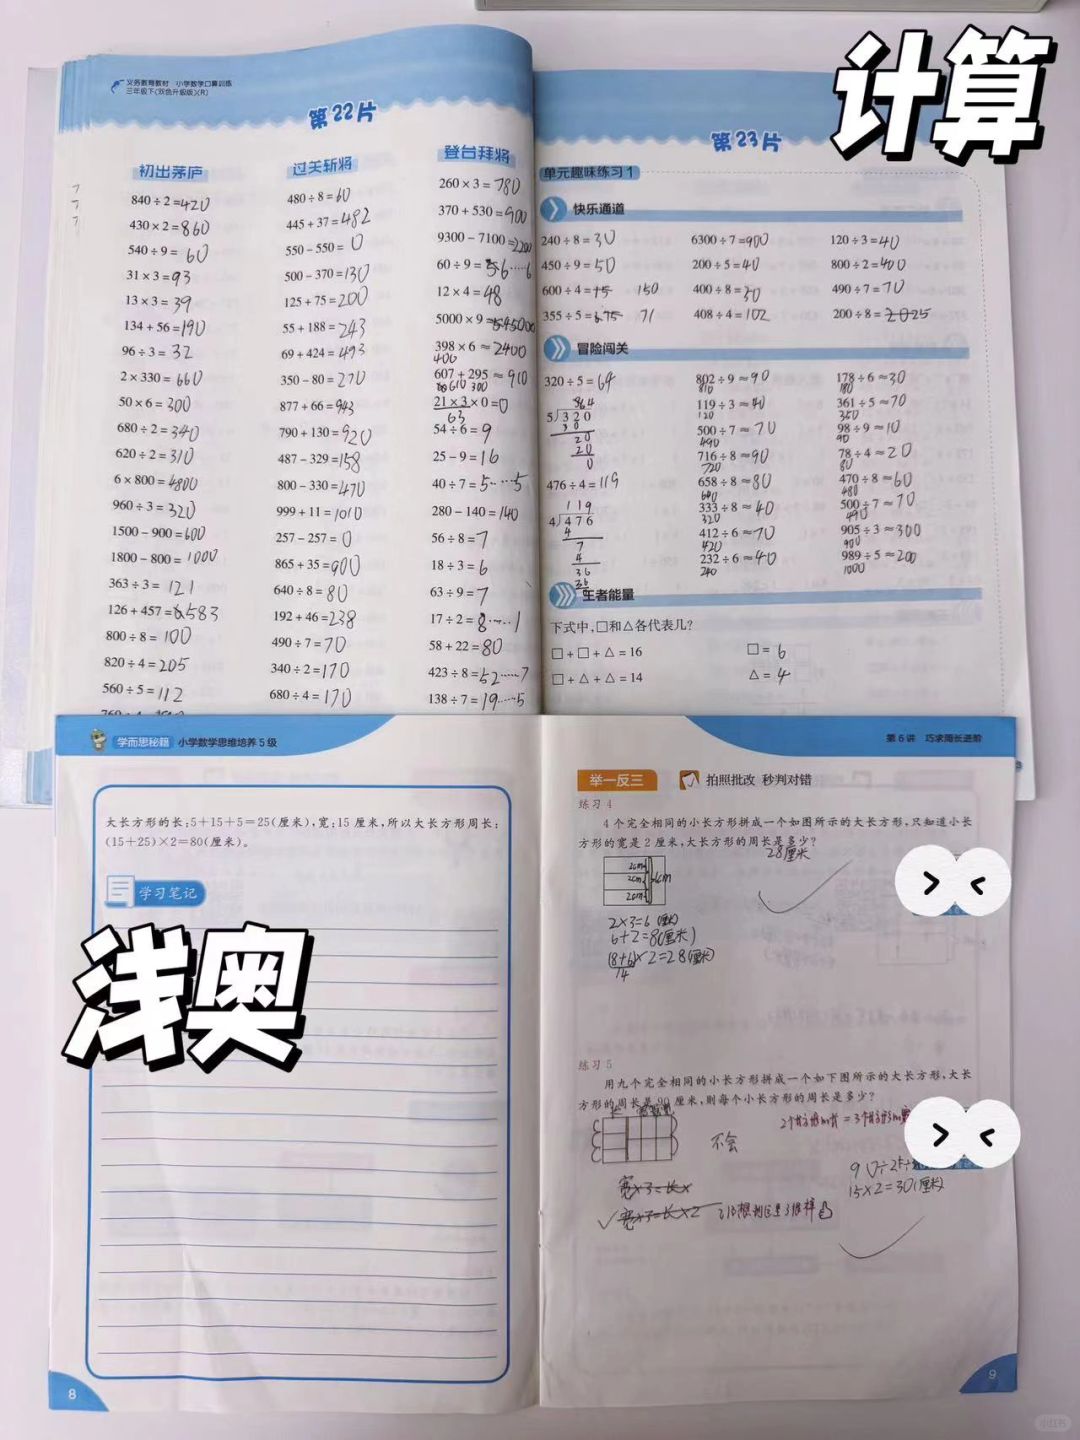 计算
义务教育教材 小学数学口算训练
三年级下(双色升级版)(R)
第22片
初出茅庐
840÷2=420
430×2=860
540÷9=60
31×3=93
13×3=39
134+56=190
96÷3=32
2×330=660
50×6=300
680÷2=340
620÷2=310
6×800=4800
960÷3=320
1500-900=600
1800-800=1000
363÷3=121
126+457=583
800÷8=100
820÷4=205
560÷5=112
过关斩将
480÷8=60
445+37=482
550-550=0
500-370=130
125+75=200
55+188=243
69+424=493
350-80=270
877+66=943
790+130=920
487-329=158
800-330=470
999+11=1010
257-257=0
865+35=900
640÷8=80
192+46=238
490÷7=70
340÷2=170
680÷4=170
登台拜将
260×3=780
370+530=900
9300-7100=2200
60÷9=6……6
12×4=48
5000×9=45000
398×6≈2400
400
607+295≈910
610 300
21×3×0=0
63
54÷6=9
25-9=16
40÷7=5……5
280-140=140
56÷8=7
18÷3=6
63÷9=7
17÷2=8……1
58+22=80
423÷8=52……7
138÷7=19……5
第23片
单元趣味练习1
快乐通道
240÷8=30 6300÷7=900 120÷3=40
450÷9=50 200÷5=40 800÷2=400
600÷4=15 150 400÷8=50 490÷7=70
355÷5= 71 408÷4=102 200÷8=2025
冒险闯关
320÷5=64 802÷9≈90 178÷6≈30
810 180
64
5 320
30
20
20
0
119÷3≈40 361÷5≈70
120 350
500÷7≈70 98÷9≈10
490 90
716÷8≈90 78÷4≈20
720 80
476÷4=119 658÷8≈80 470÷8≈60
640 480
119
4 476
4
7
4
36
36
0
333÷8≈40 500÷7≈70
320 490
412÷6≈70 905÷3≈300
420 900
232÷6≈40 989÷5≈200
240 1000
王者能量
下式中,□和△各代表几?
□+□+△=16 □=6
□+△+△=14 △=4
学而思秘籍 小学数学思维培养5级
大长方形的长:5+15+5=25(厘米),宽:15厘米,所以大长方形周长:
(15+25)×2=80(厘米)。
学习笔记
浅奥
8
第6讲 巧求周长进阶
举一反三 拍照批改 秒判对错
练习4
4个完全相同的小长方形拼成一个如图所示的大长方形,只知道小长
方形的宽是2厘米,大长方形的周长是多少?
28厘米
2cm
2cm 6cm
2cm
2×3=6(厘米)
6+2=8(厘米)
(8+6)×2=28(厘米)
14
> <
练习5
用九个完全相同的小长方形拼成一个如下图所示的大长方形,大长
方形的周长是90厘米,则每个小长方形的周长是多少?
不会
宽×3=长×
宽×3=长×2
15×2=30(厘米)
> <
9
小红书